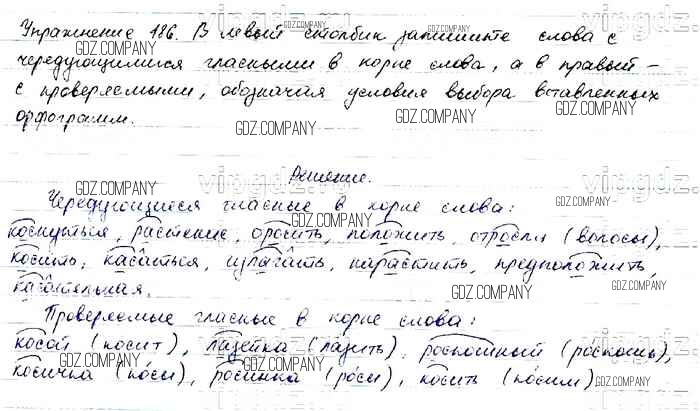 Упражнение 186. В левый столбик запишите слова с
чередующимися гласными в корне слова, а в правый –
с проверяемыми, обозначая условия выбора вставленных
орфограмм.
Решение.
Чередующиеся гласные в корне слова:
коснуться, растение, оросить, положить, отросли (волосы),
косить, касаться, излагать, нарастить, предположить,
касательная.
Проверяемые гласные в корне слова:
косой (косит), лазейка (лазить), роскошный (роскошь),
косичка (косы), росинка (росы), косить (косим)
GDZ.COMPANY
vipgdz.ru